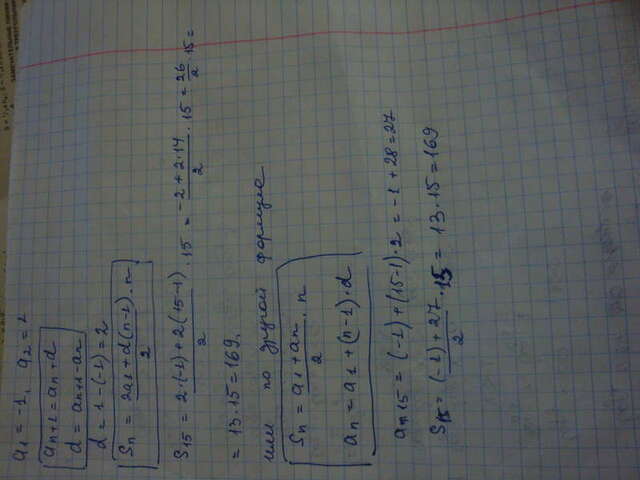 a1 = -1, a2 = 1
an+1 = an + d
d = an+1 - an
d = 1 - (-1) = 2
Sn = 2a1 + d(n-1) / 2 · n
S15 = 2·(-1) + 2(15-1) / 2 · 15 = -2 + 2·14 / 2 · 15 = 26/2 · 15 =
= 13·15 = 169.
или по другой формуле
Sn = a1 + an / 2 · n
an = a1 + (n-1)·d
an15 = (-1) + (15-1)·2 = -1 + 28 = 27
S15 = (-1) + 27 / 2 · 15 = 13·15 = 169